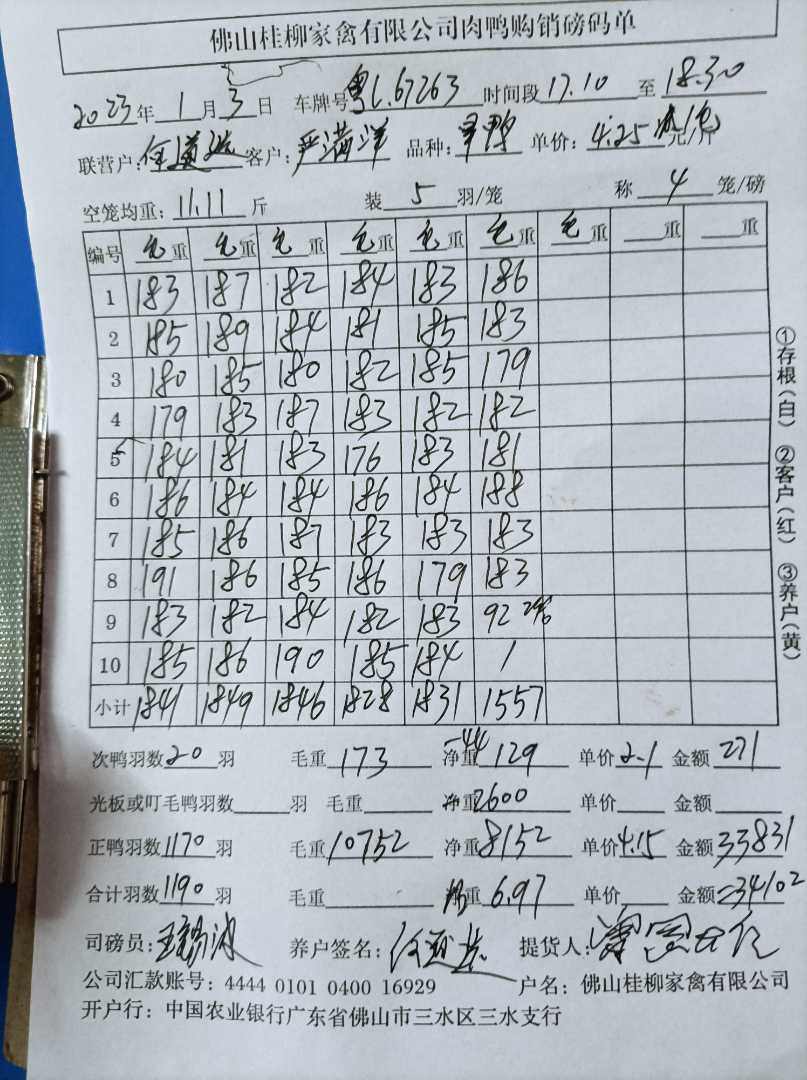 佛山桂柳家禽有限公司肉鸭购销磅码单
2023年 1月 3日 车牌号 粤L.67263 时间段 17.10 至 18.30
联营户: 客户: 严满洋 品种: 单价: 4.25 元/斤
空笼均重: 11.11 斤 装 5 羽/笼 称 4 笼/磅
编号 毛重 毛重 毛重 毛重 毛重 毛重 毛重 重 重
1 183 187 182 184 183 186
2 185 189 184 181 185 183
3 180 185 180 182 185 179
4 179 183 187 183 182 182
5 184 181 183 176 183 181
6 186 184 184 186 184 188
7 185 186 187 183 183 183
8 191 186 185 186 179 183
9 183 182 184 182 183 92 2
10 185 186 190 185 184 /
小计 1841 1849 1846 1828 1831 1557
①存根(白) ②客户(红) ③养户(黄)
次鸭羽数 20 羽 毛重 173 -44 净重 129 单价 2.1 金额 271
光板或叮毛鸭羽数 羽 毛重 净重 2600 单价 金额
正鸭羽数 1170 羽 毛重 10752 净重 8152 单价 4.15 金额 33831
合计羽数 1190 羽 毛重 重 6.97 单价 金额 34102
司磅员: 养户签名: 提货人:
公司汇款账号: 4444 0101 0400 16929 户名: 佛山桂柳家禽有限公司
开户行: 中国农业银行广东省佛山市三水区三水支行